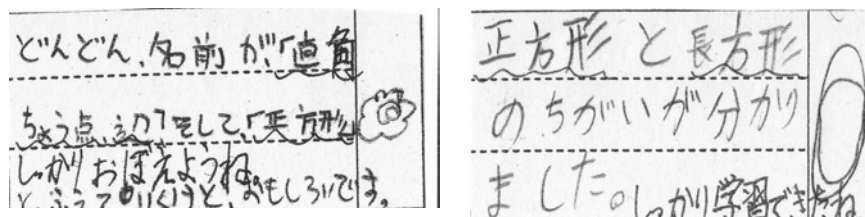 どんどん、名前が、「直角
ちょう点、
そして、「長方形」
しっかりおぼえようね。
おもしろいです。
正方形と長方形
のちがいが分かり
ました。
しっかり学習できたね